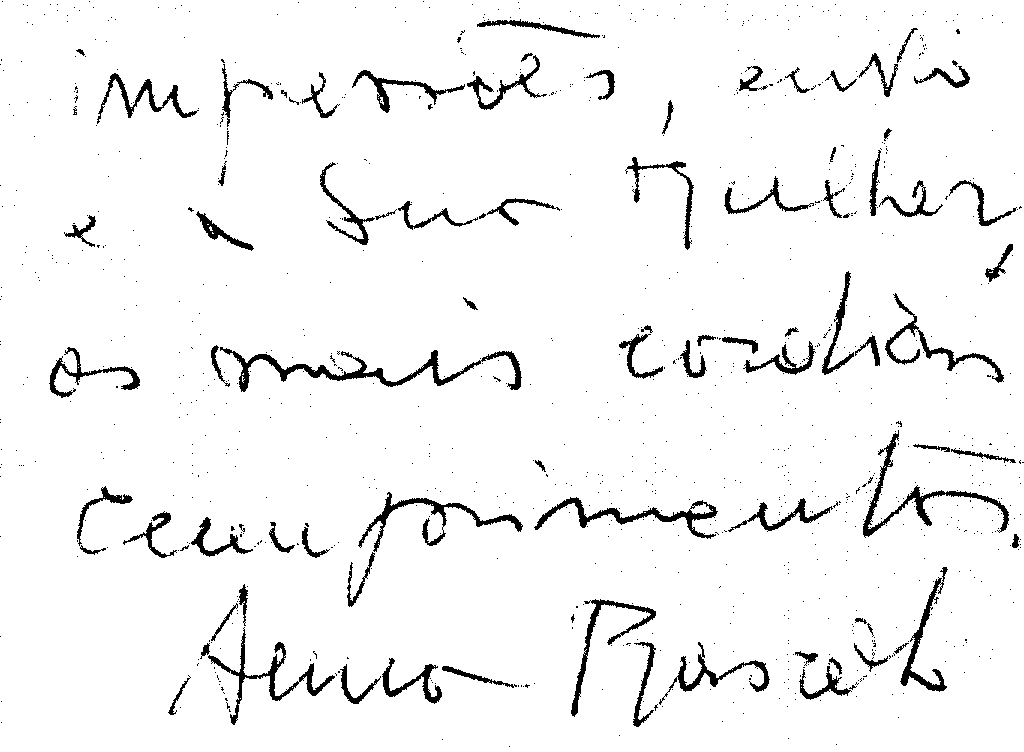 impressões, envio
e a Sua Mulher,
os mais cordiais
cumprimentos.